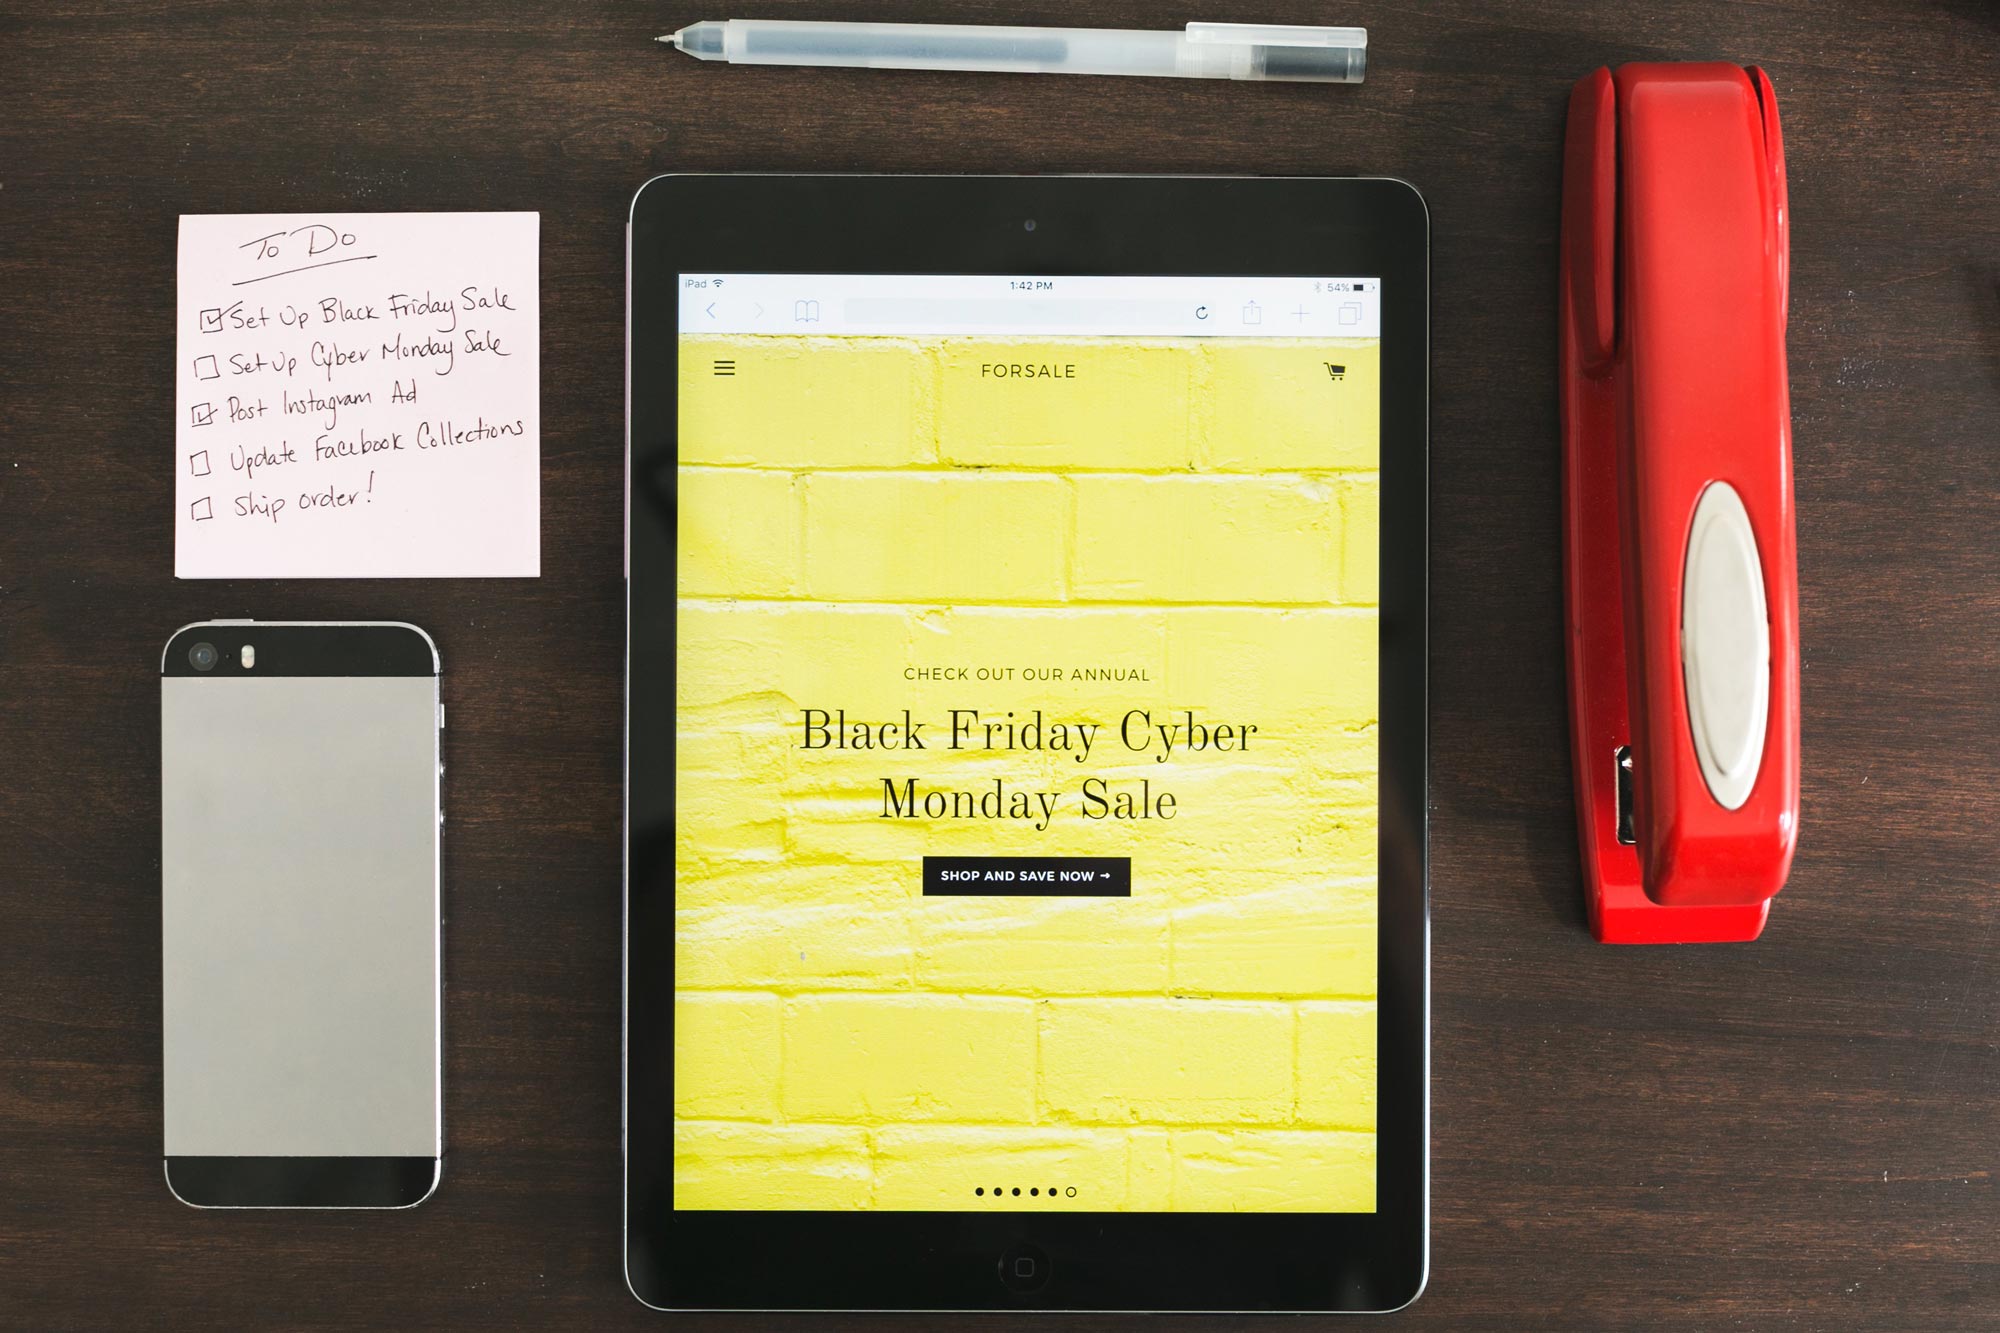 To Do
Set Up Black Friday Sale
Set Up Cyber Monday Sale
Post Instagram Ad
Update Facebook Collections
Ship order!
iPad 1:42 PM 54%
FORSALE
CHECK OUT OUR ANNUAL
Black Friday Cyber
Monday Sale
SHOP AND SAVE NOW →